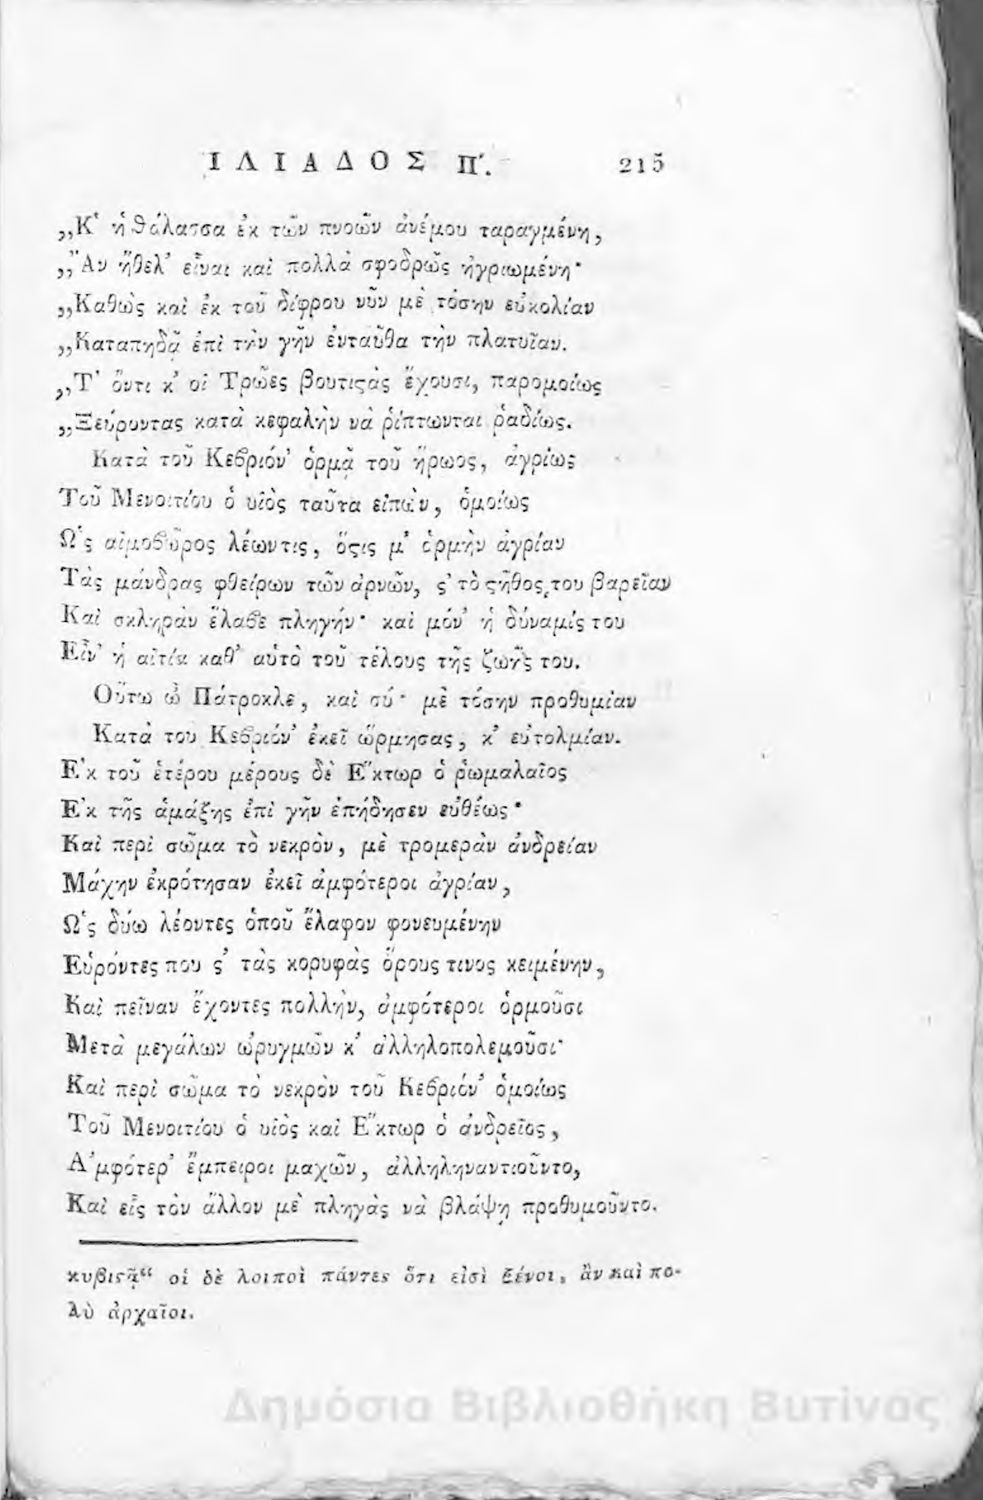 ΙΛΙΑΔΟΣ Π΄. 215
„Κ' ἡ θάλασσα ἐκ τῶν πνοῶν ἀνέμου ταραγμένη,
„Ἂν ἤθελ' εἶναι καὶ πολλὰ σφοδρῶς ἠγριωμένη·
„Καθὼς καὶ ἐκ τοῦ δίφρου νῦν μὲ τόσην εὐκολίαν
„Καταπηδᾷ ἐπὶ τὴν γῆν ἐνταῦθα τὴν πλατυῖαν.
„Τ' ὄντι κ' οἱ Τρῶες βουτιϛὰς ἔχουσι, παρομοίως
„Ξεύροντας κατὰ κεφαλὴν νὰ ῥίπτωνται ῥαδίως.
Κατὰ τοῦ Κεβριόν' ὁρμᾷ τοῦ ἥρωος, ἀγρίως
Τοῦ Μενοιτίου ὁ υἱὸς ταῦτα εἰπὼν, ὁμοίως
Ὡς αἱμοβῶρος λέωντις, ὅϛις μ' ὁρμὴν ἀγρίαν
Τὰς μάνδρας φθείρων τῶν ἀρνῶν, ϛ' τὸ ϛῆθος του βαρεῖαν
Καὶ σκληρὰν ἔλαβε πληγήν· καὶ μόν' ἡ δύναμίς του
Εἶν' ἡ αἰτία καθ' αὑτὸ τοῦ τέλους τῆς ζωῆς του.
Οὕτω ὦ Πάτροκλε, καὶ σύ· μὲ τόσην προθυμίαν
Κατὰ του Κεβριόν' ἐκεῖ ὥρμησας, κ' εὐτολμίαν.
Ἐκ τοῦ ἑτέρου μέρους δὲ Ἕκτωρ ὁ ῥωμαλαῖος
Ἐκ τῆς ἁμάξης ἐπὶ γῆν ἐπήδησεν εὐθέως·
Καὶ περὶ σῶμα τὸ νεκρὸν, μὲ τρομερὰν ἀνδρείαν
Μάχην ἐκρότησαν ἐκεῖ ἀμφότεροι ἀγρίαν,
Ὡς δύω λέοντες ὁποῦ ἔλαφον φονευμένην
Εὑρόντες που ϛ' τὰς κορυφὰς ὄρους τινος κειμένην,
Καὶ πεῖναν ἔχοντες πολλὴν, ἀμφότεροι ὁρμοῦσι
Μετὰ μεγάλων ὠρυγμῶν κ' ἀλληλοπολεμοῦσι·
Καὶ περὶ σῶμα τὸ νεκρὸν τοῦ Κεβριόν' ὁμοίως
Τοῦ Μενοιτίου ὁ υἱὸς καὶ Ἕκτωρ ὁ ἀνδρεῖος,
Ἀμφότερ' ἔμπειροι μαχῶν, ἀλληληναντιοῦντο,
Καὶ εἷς τὸν ἄλλον μὲ πληγὰς νὰ βλάψῃ προθυμοῦντο.
κυβιϛᾷ“ οἱ δὲ λοιποὶ πάντες ὅτι εἰσὶ ξένοι, ἂν καὶ πο-
λὺ ἀρχαῖοι.
Δημόσια Βιβλιοθήκη Βυτίνας